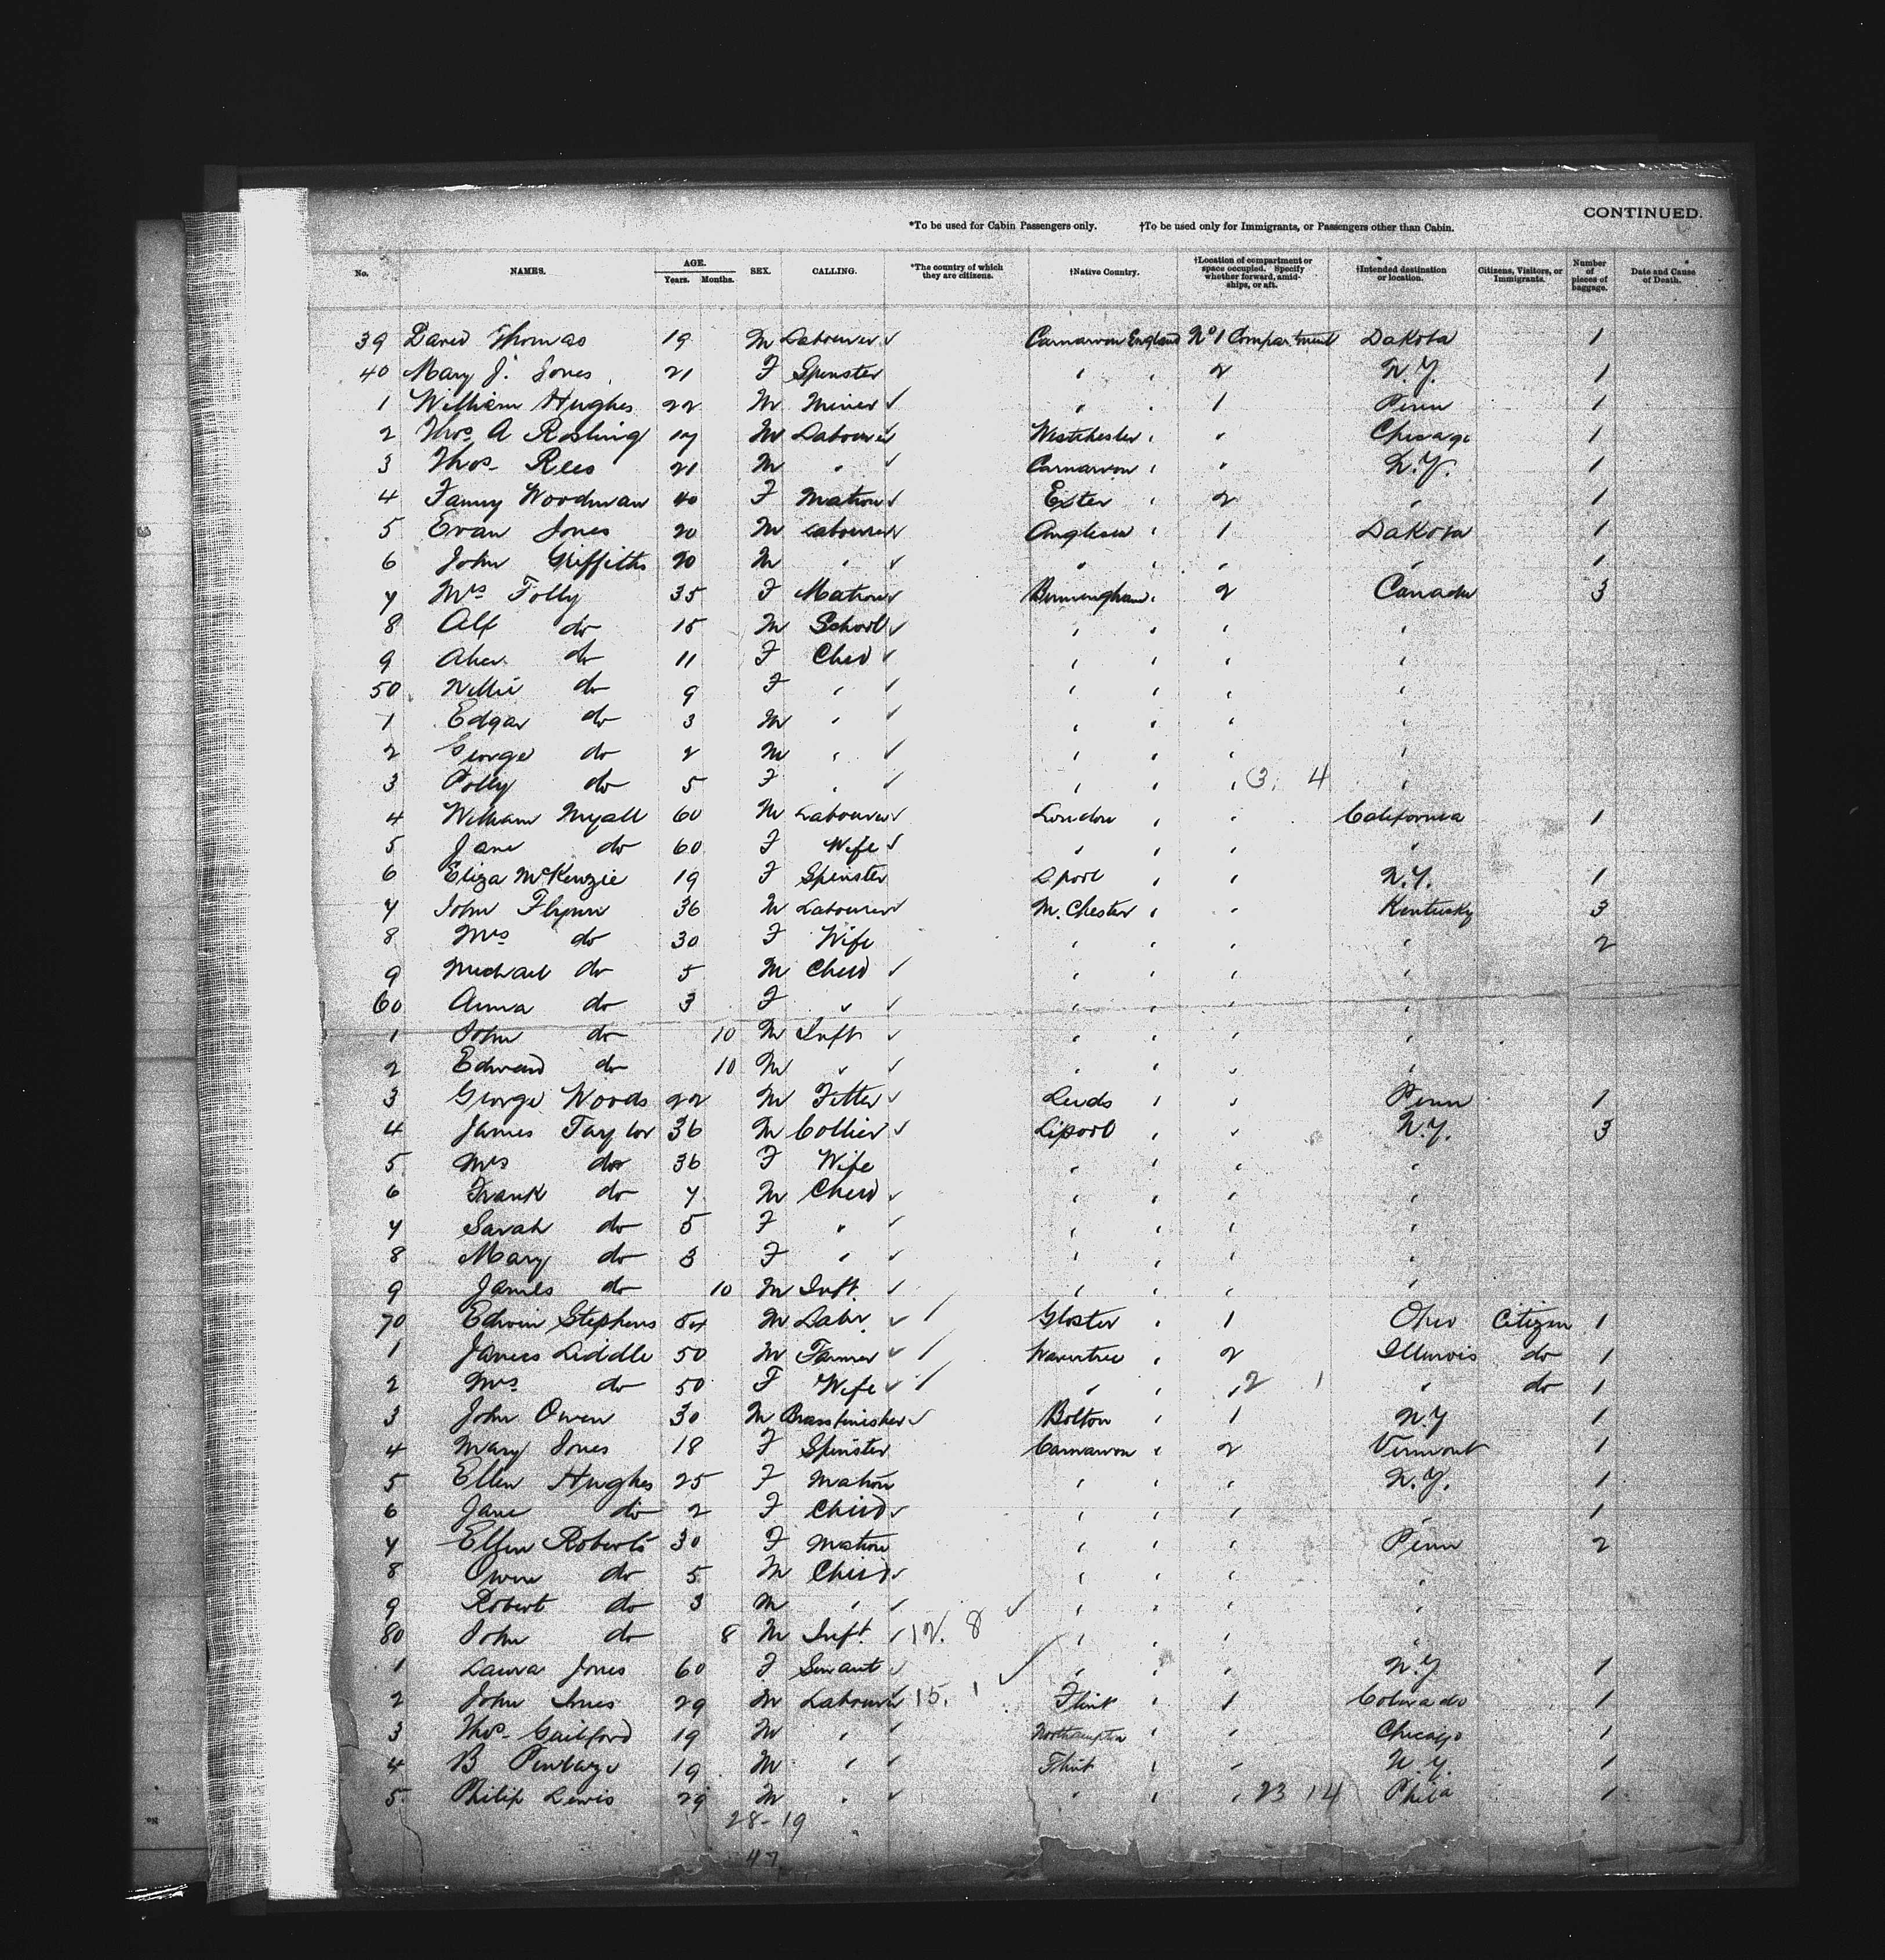 CONTINUED.
*To be used for Cabin Passengers only. †To be used only for Immigrants, or Passengers other than Cabin.
No. NAMES. AGE. Years. Months. SEX. CALLING. *The country of which they are citizens. †Native Country. †Location of compartment or space occupied. Specify whether forward, amidships, or aft. †Intended destination or location. Citizens, Visitors, or Immigrants. Number of pieces of baggage. Date and Cause of Death.
39 David Thomas 19 M Labourer ✓ Carnarvon England No 1 Compartment Dakota 1
40 Mary J. Jones 21 F Spinster " " 2 N.Y. 1
1 William Hughes 22 M Miner ✓ " " 1 Penn 1
2 Thos A Rosling 17 M Labourer ✓ Westchester " " Chicago 1
3 Thos Rees 21 M " ✓ Carnarvon " " N.Y. 1
4 Fanny Woodman 40 F Matron ✓ Exter " 2 " 1
5 Evan Jones 20 M Labourer ✓ Anglesea " 1 Dakota 1
6 John Griffiths 20 M " ✓ " " " 1
7 Mrs Folly 35 F Matron ✓ Birmingham " 2 Canada 3
8 Alf do 15 M School ✓ " " " "
9 do 11 F Child ✓ " " " "
50 Nellie do 9 F " ✓ " " " "
1 Edgar do 3 M " ✓ " " " "
2 George do 2 M " ✓ " " " "
3 Polly do 5 F " ✓ " " " 3. 4 "
4 William Myall 60 M Labourer ✓ London " " California 1
5 Jane do 60 F Wife ✓ " " " "
6 Eliza McKenzie 19 F Spinster Lpool " " N.Y. 1
7 John Flynn 36 M Labourer ✓ M. Chester " " Kentucky 3
8 Mrs do 30 F Wife " " " " 2
9 Michael do 5 M Child ✓ " " " "
60 Anna do 3 F " ✓ " " " "
1 John do 10 M Inft ✓ " " " "
2 Edward do 10 M " ✓ " " " "
3 George Woods 22 M Fitter ✓ Leeds " " Penn 1
4 James Taylor 36 M Collier ✓ Lipool " " N.Y. 3
5 Mrs do 36 F Wife " " " "
6 Frank do 7 M Child ✓ " " " "
7 Sarah do 5 F " ✓ " " " "
8 Mary do 3 F " ✓ " " " "
9 James do 10 M Inft. ✓ " " " "
70 Edwin Stephens 54 M Labr. ✓ / Gloster " 1 Ohio Citizen 1
1 James Liddle 50 M Farmer ✓ / Wavertree " 2 Illinois do 1
2 Mrs do 50 F Wife ✓ / " " " 2 1 " do 1
3 John Owen 30 M Brassfinisher ✓ Bolton " 1 N.Y 1
4 Mary Jones 18 F Spinster Carnarvon " 2 Vermont 1
5 Ellen Hughes 25 F Matron " " " N.Y. 1
6 Jane do 2 F Child ✓ " " " " 1
7 Ellen Roberts 30 F Matron " " " Penn 2
8 Owen do 5 M Child ✓ " " " "
9 Robert do 3 M " ✓ ✓ " " " "
80 John do 8 M Inft. ✓ 12. 8 " " " "
1 Laura Jones 60 F Servant ✓ ✓ " " " N.Y 1
2 John Jones 29 M Labourer ✓ 15. 1 Flint " 1 Colorado 1
3 Thos Gailford 19 M " ✓ Northampton " " Chicago 1
4 B 19 M " ✓ Flint " " N.Y. 1
5 Philip Lewis 29 M " ✓ " " " 23 14 Phila 1
28-19
47